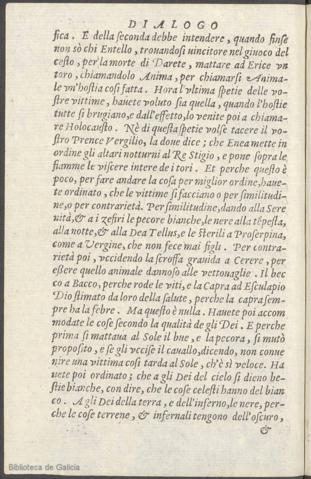 DIALOGO
fica. E della seconda debbe intendere, quando finse
non sò chi Entello, trouandosi uincitore nel giuoco del
cesto, per la morte di Darete, mattare ad Erice vn
toro, chiamandolo Anima, per chiamarsi Anima-
le vn'hostia cosi fatta. Hora l'vltima spetie delle vo-
stre vittime, hauete voluto sia quella, quando l'hostie
tutte si brugiano, e dall'effetto, lo venite poi a chiama-
re Holocausto. Nè di questa spetie volse tacere il vo-
stro Prence Vergilio, la doue dice; che Enea mette in
ordine gli altari notturni al Re Stigio, e pone sopra le
fiamme le viscere intere de i tori. Et perche questo è
poco, per fare andare la cosa per miglior ordine, haue-
te ordinato, che le vittime si facciano o per similitudi-
ne, o per contrarietà. Per similitudine, dando alla Sere
nità, & a i zefiri le pecore bianche, le nere alla tẽpesta,
alla notte, & alla Dea Tellus, e le sterili a Proserpina,
come a Vergine, che non fece mai figli. Per contra-
rietà poi, vccidendo la scroffa grauida a Cerere, per
essere quello animale dannoso alle vettouaglie. Il bec
co a Bacco, perche rode le viti, e la Capra ad Esculapio
Dio stimato da loro della salute, perche la capra sem-
pre ha la febre. Ma questo è nulla. Hauete poi accom
modate le cose secondo la qualità de gli Dei. E perche
prima si mattaua al Sole il bue, e la pecora, si mutò
proposito, e se gli vccise il cauallo, dicendo, non conue
nire una vittima cosi tarda al Sole, ch'è sì veloce. Ha
uete poi ordinato; che a gli Dei del cielo si dieno be-
stie bianche, con dire, che le cose celesti hanno del bian
co. A gli Dei della terra, e dell'inferno, le nere, per-
che le cose terrene, & infernali tengono dell'oscuro,
&
Biblioteca de Galicia